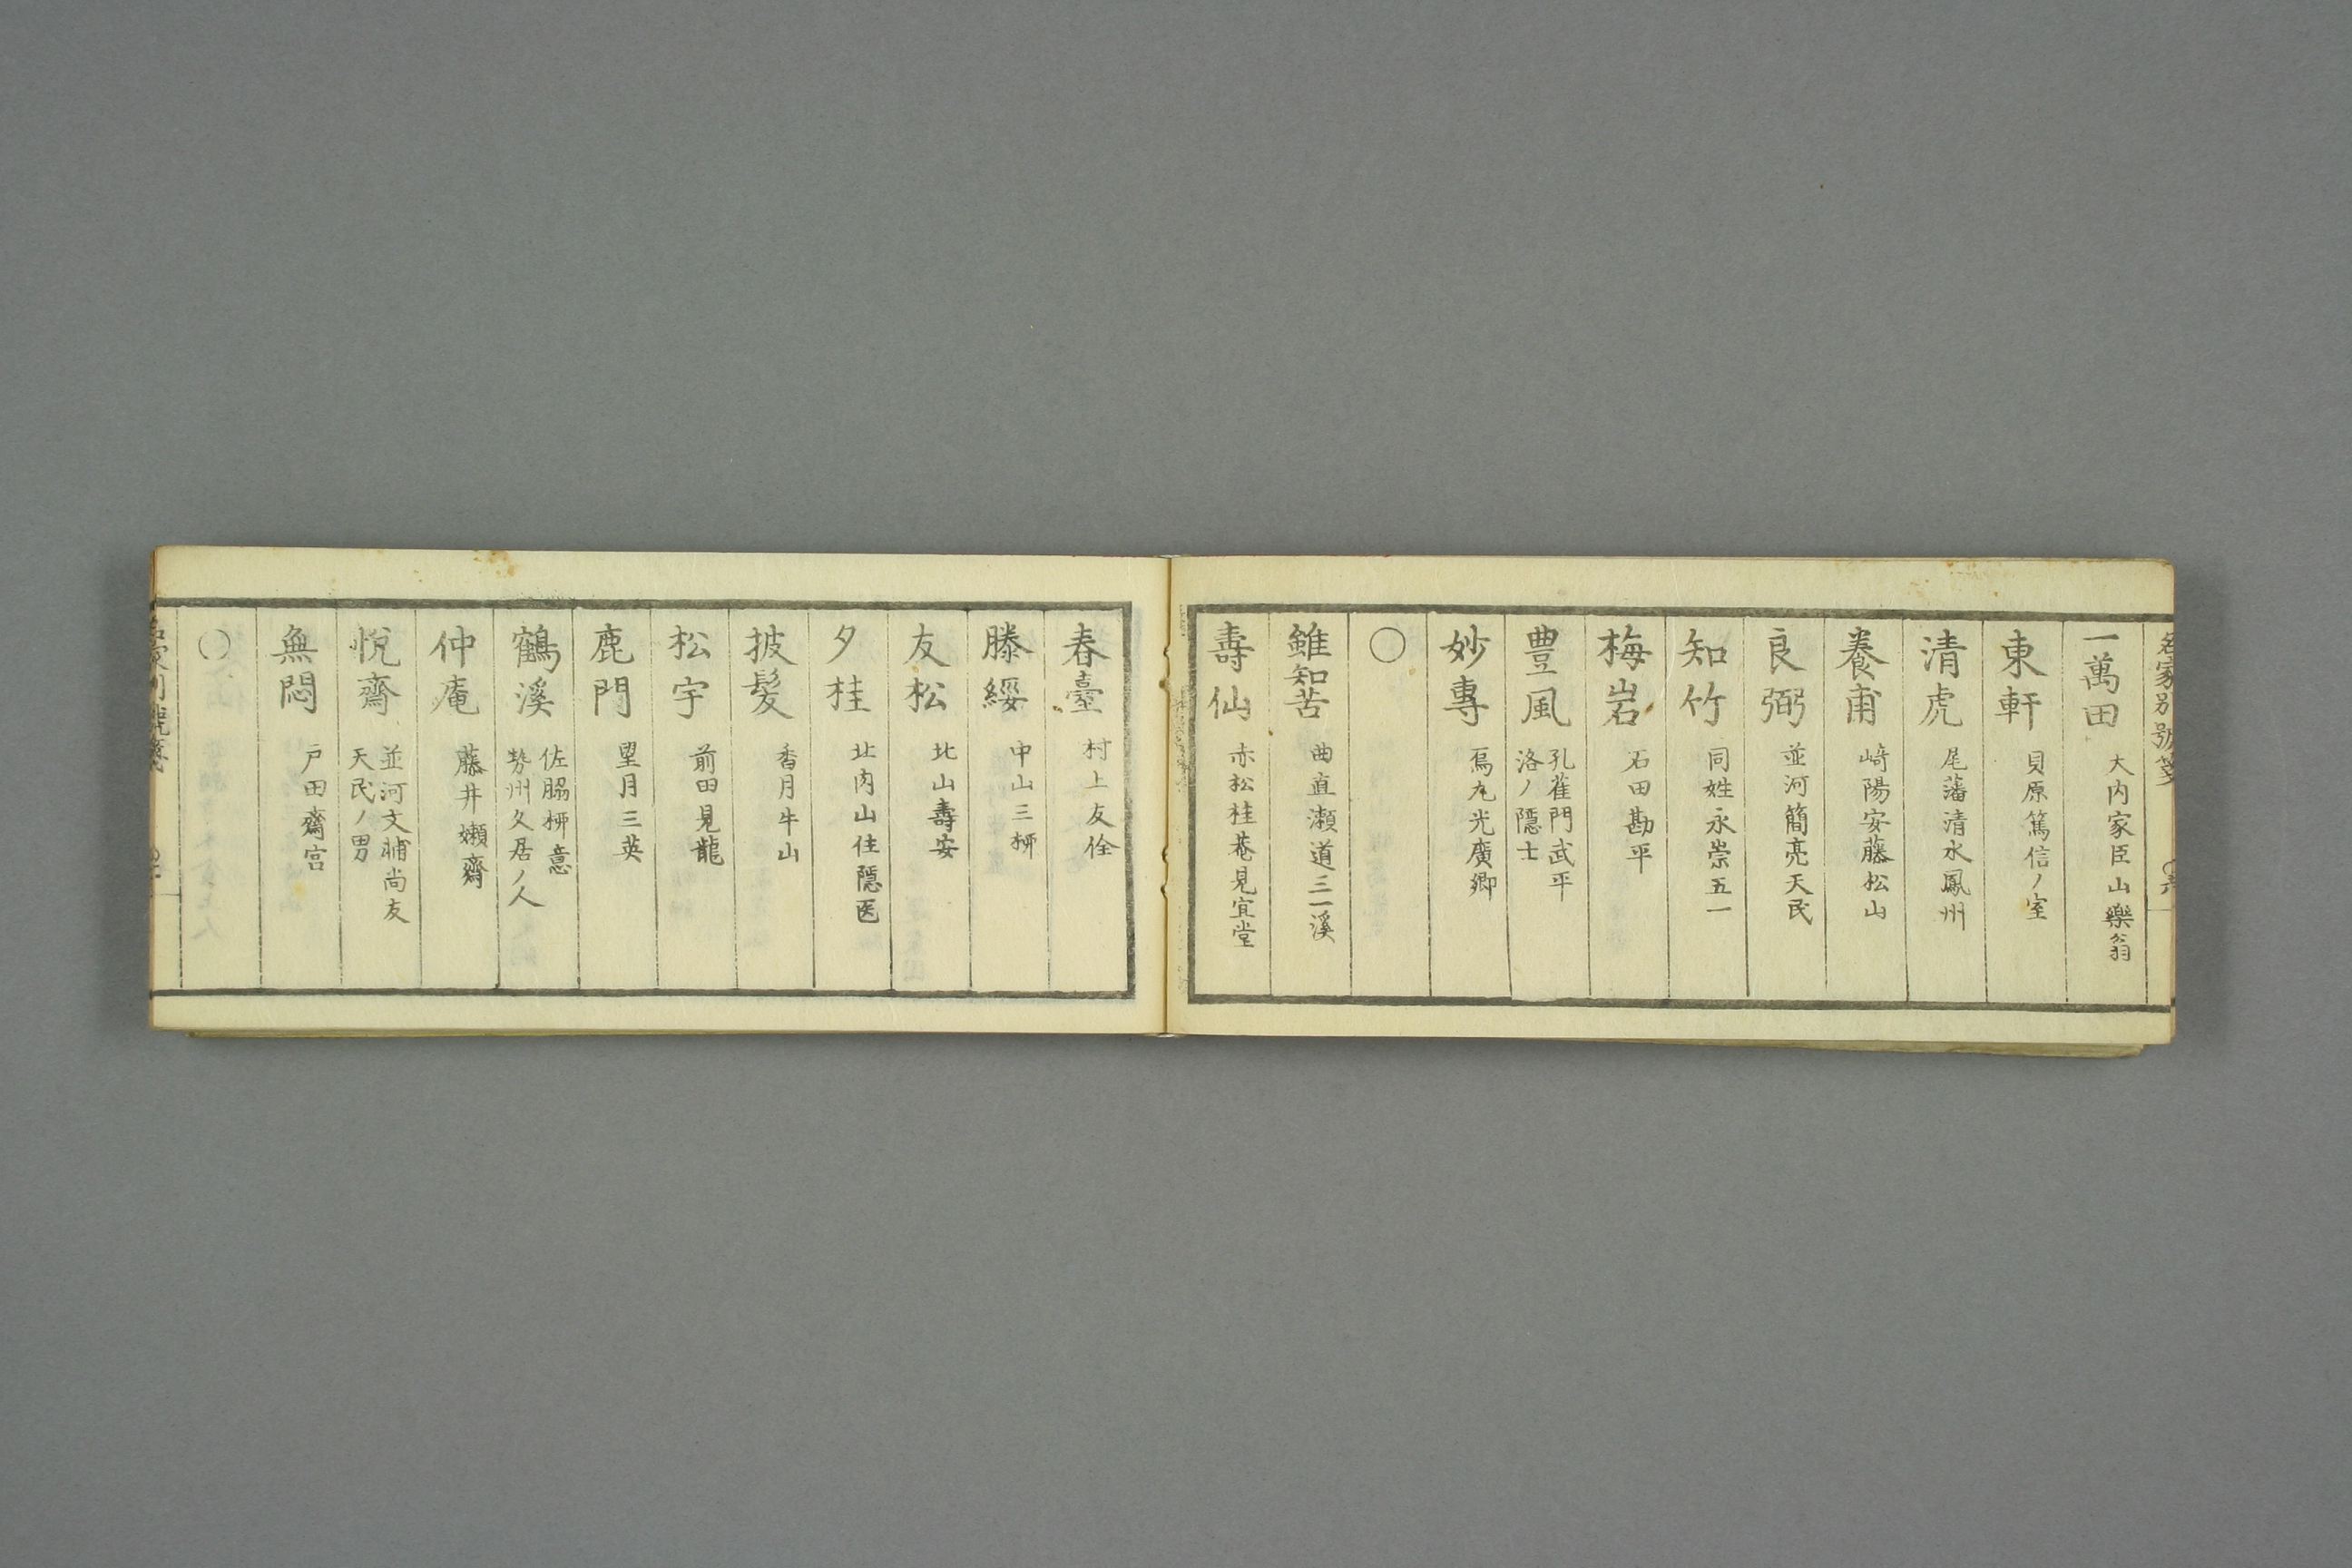 名家別號箋
一萬田 大内家臣山樂翁
東軒 貝原篤信ノ室
清虎 尾藩清水鳳州
養甫 﨑陽安藤松山
良弼 並河簡亮天民
知竹 同姓永崇五一
梅岩 石田勘平
豊風 孔雀門武平
洛ノ隠士
妙專 烏丸光廣卿
〇
雖知苦 曲直瀬道三一溪
壽仙 赤松桂菴見宜堂
春臺 村上友佺
滕綏 中山三栁
友松 北山壽安
夕桂 北内山住隠医
披髪 香月牛山
松宇 前田見龍
鹿門 望月三英
鶴溪 佐脇栁意
勢州久居ノ人
仲庵 藤井嬾齋
悅齋 並河文輔尚友
天民ノ男
無悶 戸田齋宮
〇